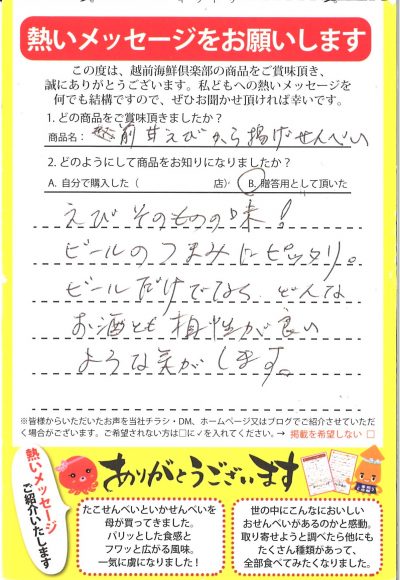 熱いメッセージをお願いします
この度は、越前海鮮倶楽部の商品をご賞味頂き、
誠にありがとうございます。私どもへの熱いメッセージを
何でも結構ですので、ぜひお聞かせ頂ければ幸いです。
1. どの商品をご賞味頂きましたか?
商品名: 越前甘えびから揚げせんべい
2. どのようにして商品をお知りになりましたか?
A. 自分で購入した( 店) B. 贈答用として頂いた
えびそのものの味!
ビールのつまみにピッタリ。
ビールだけでなく、どんな
お酒とも相性が良い
ような気がします。
※皆様からいただいたお声を当社チラシ・DM、ホームページ又はブログでご紹介させていただ
く場合がございます。ご希望されない方は□に✓を入れてください。→ 掲載を希望しない □
熱いメッセージ
ご紹介いたします
ありがとうございます
たこせんべいといかせんべいを
母が買ってきました。
パリッとした食感と
フワッと広がる風味。
一気に虜になりました!
世の中にこんなにおいしい
おせんべいがあるのかと感動。
取り寄せようと調べたら他にも
たくさん種類があって、
全部食べてみたくなりました。